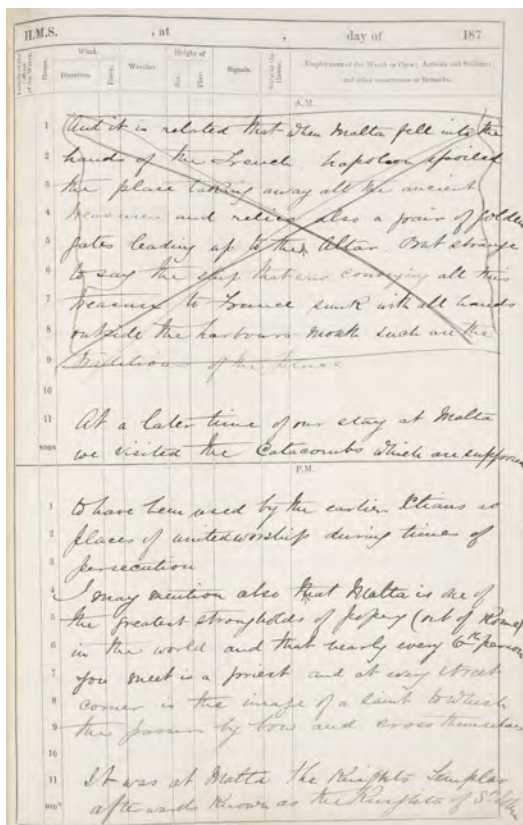 H.M.S. , at , day of 187
Hours.
Wind.
Direction.
Force.
Weather.
Height of
Bar.
Ther.
Signals.
Employment of the Watch or Crew; Arrivals and Sailings;
and other occurrences or Remarks.
A.M.
1 And it is related that when Malta fell into the
2 hands of the French. Napoleon spoiled
3 the place taking away all the ancient
4 treasures and relics also a pair of golden
5 gates leading up to the Altar. But strange
6 to say the ship that was conveying all this
7 treasure to France sunk with all hands
8 outside the harbours mouth such are the
9 traditions of the place
10
11 At a later time of our stay at Malta
NOON we visited the Catacombs which are supposed
P.M.
1 to have been used by the earlier Xtians as
2 places of united worship during times of
3 persecution
4 I may mention also that Malta is one of
5 the greatest strongholds of popery (out of Rome)
6 in the world and that nearly every 6th person
7 you meet is a priest and at every street
8 corner is the image of a saint to which
9 the passers by bow and cross themselves
10
11 It was at Malta the Knights Templar
MIDT afterwards known as the Knights of St John